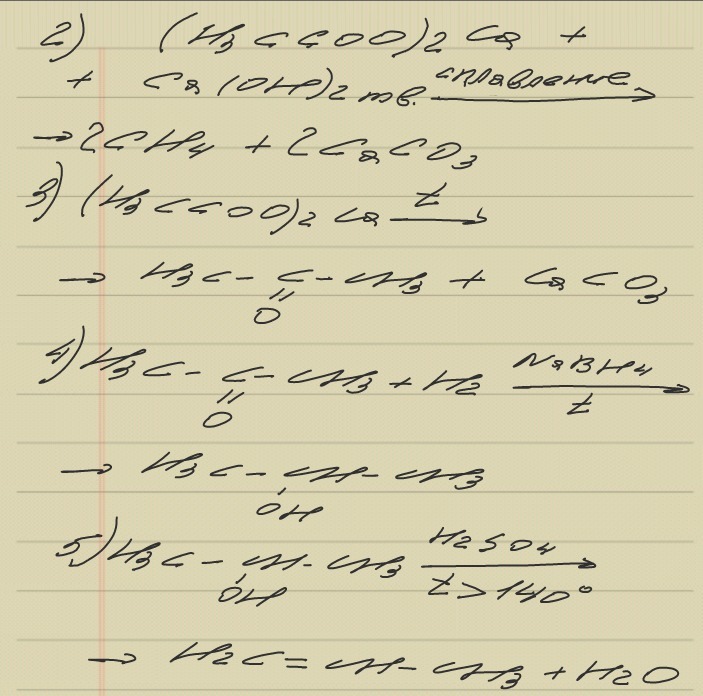 2) (H₃CCOO)₂Ca +
+ Ca(OH)₂ тв. сплавление →
→ 2CH₄ + 2CaCO₃
3) (H₃CCOO)₂Ca t →
→ H₃C - C - CH₃ + CaCO₃
=
O
4) H₃C - C - CH₃ + H₂ NaBH₄ →
=
O t
→ H₃C - CH - CH₃
OH
5) H₃C - CH - CH₃ H₂SO₄ →
OH t > 140°
→ H₂C = CH - CH₃ + H₂O